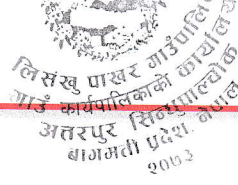 लिसंखु पाखर गाउँपालिका
गाउँ कार्यपालिकाको कार्यालय
अत्तरपुर सिन्धुपाल्चोक
बागमती प्रदेश, नेपाल
२०७३